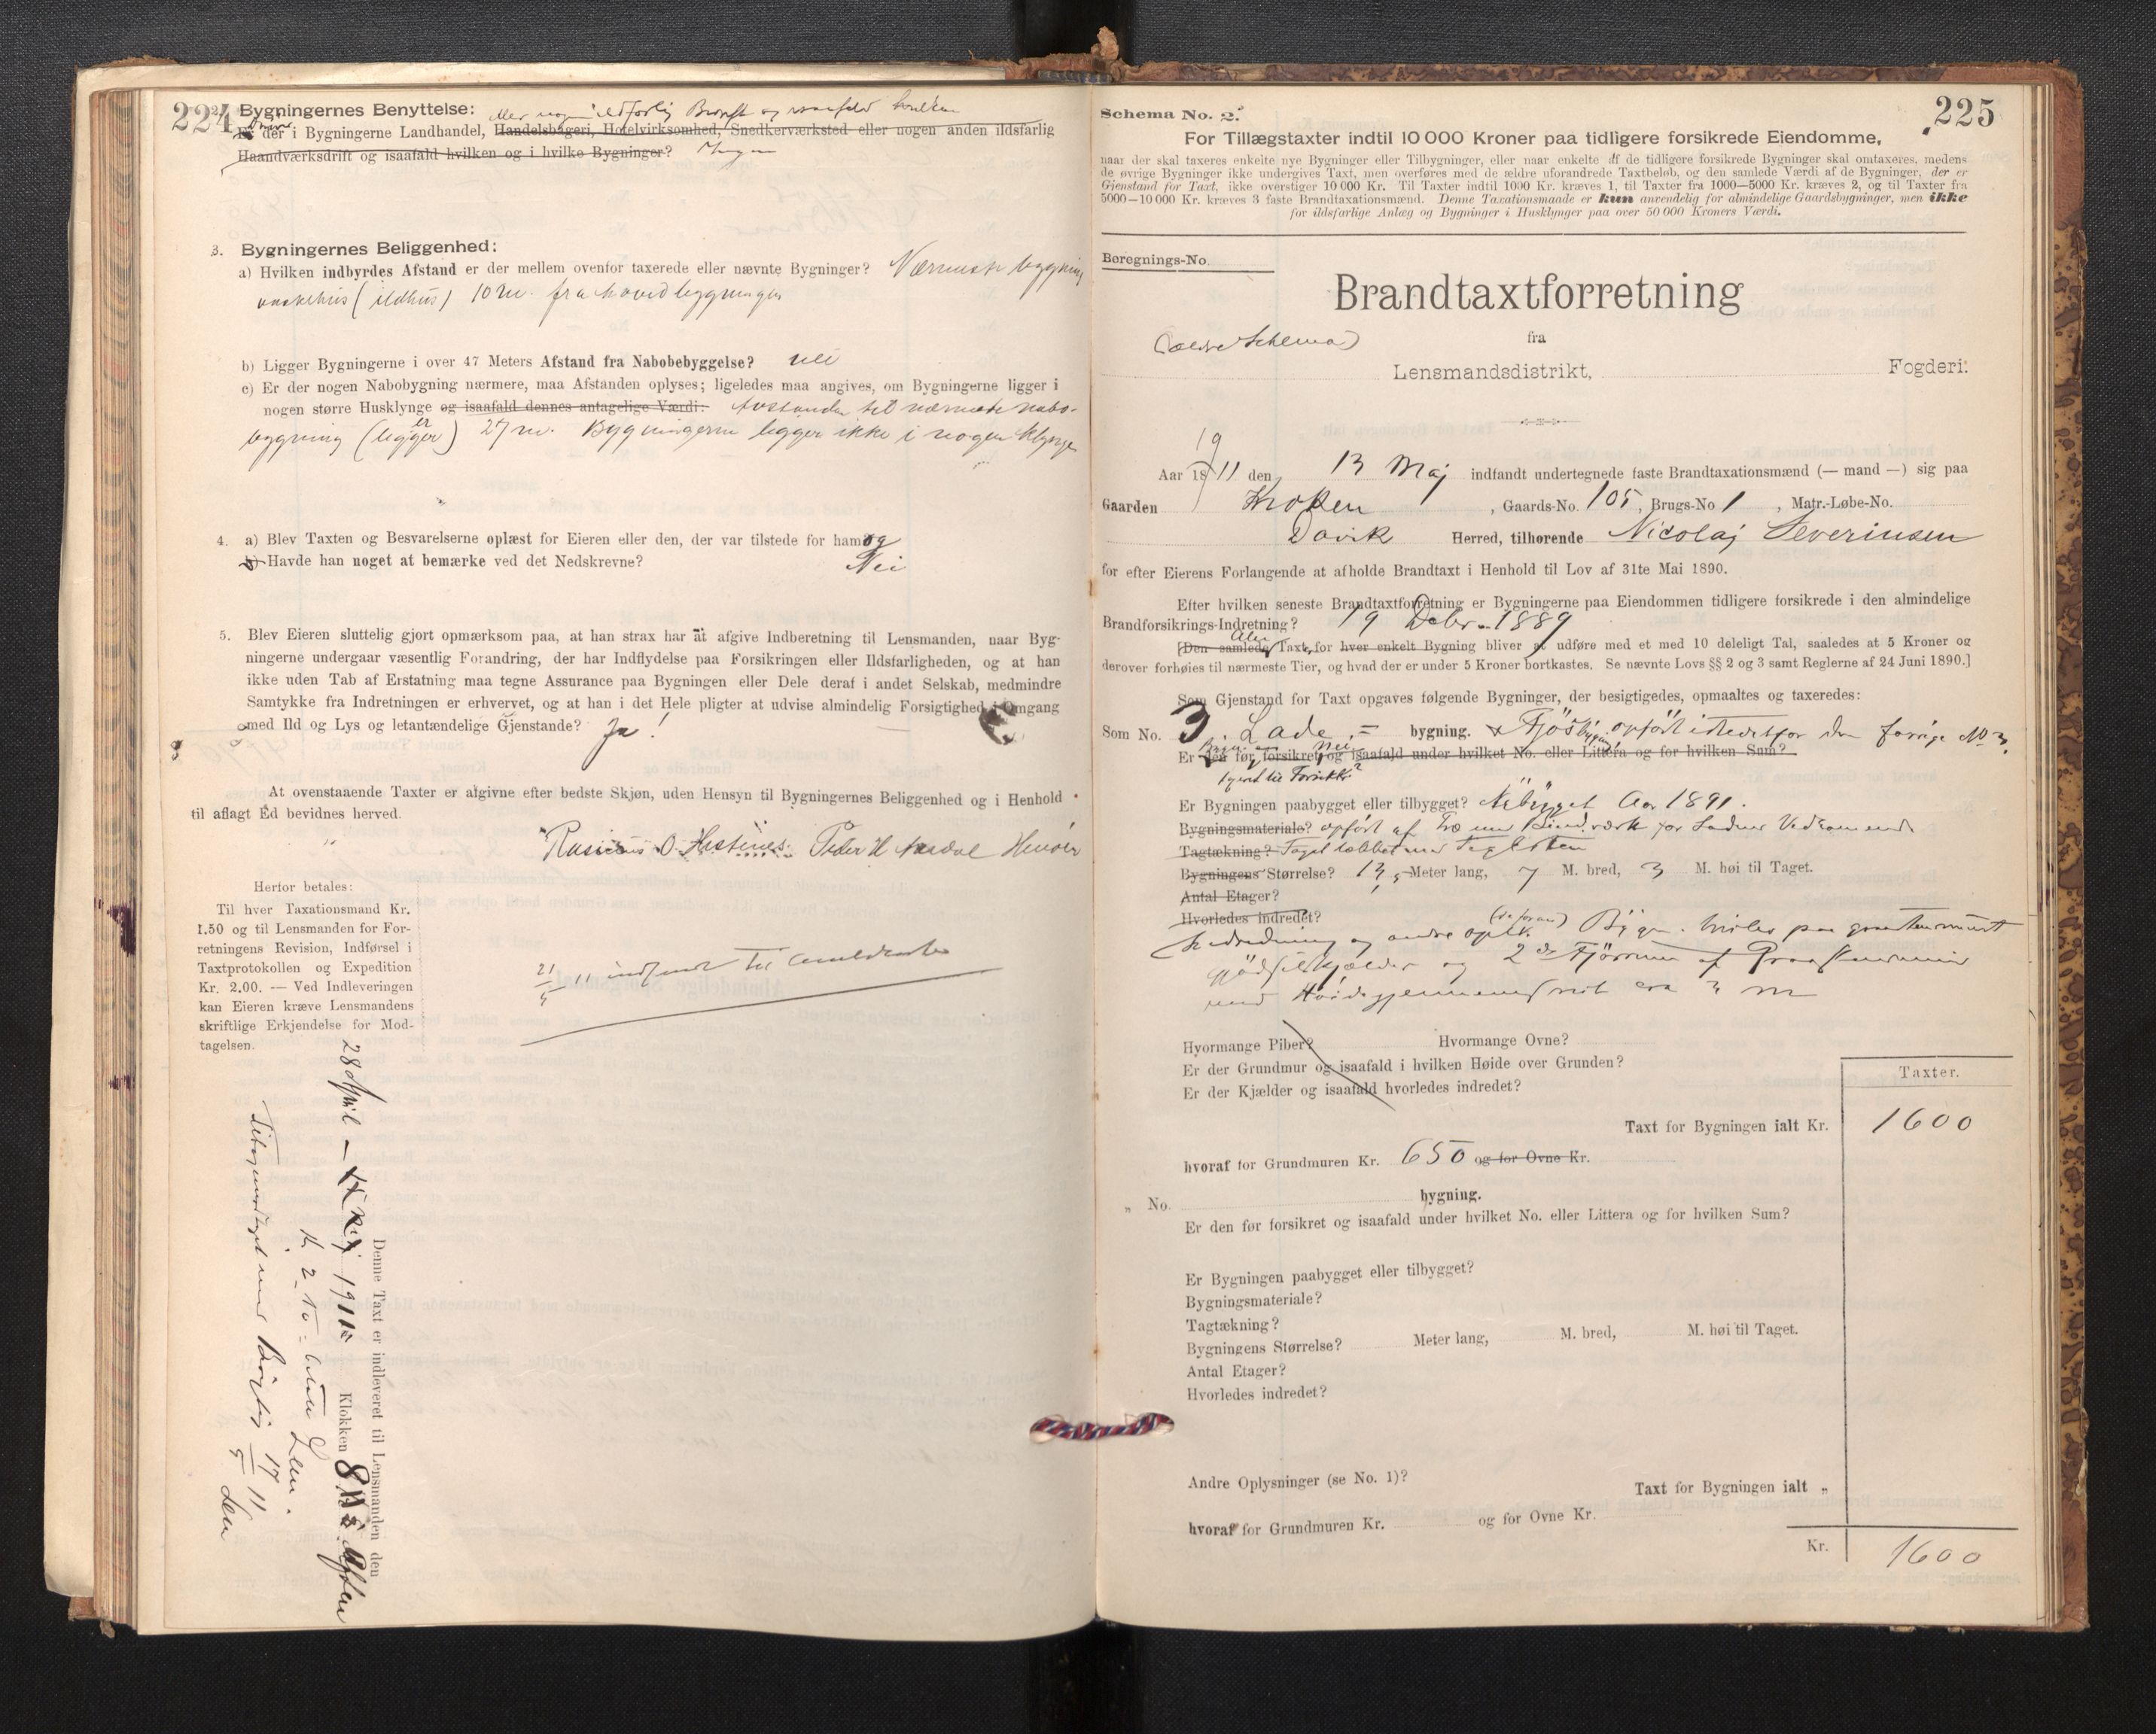 224
Bygningernes Benyttelse: eller nogen ildsfarlig Bedrift og isaafald hvilken
Er der i Bygningerne Landhandel, Handelsbageri, Hotelvirksomhed, Snedkerværksted eller nogen anden ildsfarlig
Haandværksdrift og isaafald hvilken og i hvilke Bygninger? Ingen
3. Bygningernes Beliggenhed:
a) Hvilken indbyrdes Afstand er der mellem ovenfor taxerede eller nævnte Bygninger? Nærmeste bygning
vaskehus (ildhus) 10 m. fra hovedbygningen
b) Ligger Bygningerne i over 47 Meters Afstand fra Nabobebyggelse? nei
c) Er der nogen Nabobygning nærmere, maa Afstanden oplyses; ligeledes maa angives, om Bygningerne ligger i
nogen større Husklynge og isaafald dennes antagelige Værdi: Avstanden til nærmeste nabo-
bygning (ligger) er 27 m. Bygningerne ligger ikke i nogen klynge
4. a) Blev Taxten og Besvarelserne oplæst for Eieren eller den, der var tilstede for ham og
b) Havde han noget at bemærke ved det Nedskrevne? Nei
5. Blev Eieren sluttelig gjort opmærksom paa, at han strax har at afgive Indberetning til Lensmanden, naar Byg-
ningerne undergaar væsentlig Forandring, der har Indflydelse paa Forsikringen eller Ildsfarligheden, og at han
ikke uden Tab af Erstatning maa tegne Assurance paa Bygningen eller Dele deraf i andet Selskab, medmindre
Samtykke fra Indretningen er erhvervet, og at han i det Hele pligter at udvise almindelig Forsigtighed i Omgang
med Ild og Lys og letantændelige Gjenstande? Ja!
At ovenstaaende Taxter er afgivne efter bedste Skjøn, uden Hensyn til Bygningernes Beliggenhed og i Henhold
til aflagt Ed bevidnes herved.
Rasmus O. Hestenes. Peder H Aasdal Henden
Herfor betales:
Til hver Taxationsmand Kr.
1.50 og til Lensmanden for For-
retningens Revision, Indførsel i
Taxtprotokollen og Expedition
Kr. 2.00. — Ved Indleveringen
kan Eieren kræve Lensmandens
skriftlige Erkjendelse for Mod-
tagelsen.
21/5 11 indsendt til
Denne Taxt er indleveret til Lensmanden den
28 April 1911 Klokken 8 Aften
17/5 11
225
Schema No. 2.
For Tillægstaxter indtil 10 000 Kroner paa tidligere forsikrede Eiendomme,
naar der skal taxeres enkelte nye Bygninger eller Tilbygninger, eller naar enkelte af de tidligere forsikrede Bygninger skal omtaxeres, medens
de øvrige Bygninger ikke undergives Taxt, men overføres med de ældre uforandrede Taxtbeløb, og den samlede Værdi af de Bygninger, der er
Gjenstand for Taxt, ikke overstiger 10 000 Kr. Til Taxter indtil 1000 Kr. kræves 1, til Taxter fra 1000—5000 Kr. kræves 2, og til Taxter fra
5000—10 000 Kr. kræves 3 faste Brandtaxationsmænd. Denne Taxationsmaade er kun anvendelig for almindelige Gaardsbygninger, men ikke
for ildsfarlige Anlæg og Bygninger i Husklynger paa over 50 000 Kroners Værdi.
Beregnings-No.
Brandtaxtforretning
(ældre Schema)
fra
Lensmandsdistrikt, Fogderi:
Aar 1911 den 13 Maj indfandt undertegnede faste Brandtaxationsmænd (— mand —) sig paa
Gaarden Kroken, Gaards-No. 105, Brugs-No 1, Matr.-Løbe-No.
Davik Herred, tilhørende Nicolaj Severinsen
for efter Eierens Forlangende at afholde Brandtaxt i Henhold til Lov af 31te Mai 1890.
Efter hvilken seneste Brandtaxtforretning er Bygningerne paa Eiendommen tidligere forsikrede i den almindelige
Brandforsikrings-Indretning? 19 Debr 1889
[Den samlede Taxt for hver enkelt Bygning bliver at udføre med et med 10 deleligt Tal, saaledes at 5 Kroner og
derover forhøies til nærmeste Tier, og hvad der er under 5 Kroner bortkastes. Se nævnte Lovs §§ 2 og 3 samt Reglerne af 24 Juni 1890.]
Som Gjenstand for Taxt opgaves følgende Bygninger, der besigtigedes, opmaaltes og taxeredes:
Som No. 3. Lade = bygning. & Fjøsbygning opført istedetfor den forrige No 3.
Er den før forsikret og isaafald under hvilket No. eller Littera og for hvilken Sum?
Er Bygningen paabygget eller tilbygget? Nybygget Aar 1891.
Bygningsmateriale? opført af Træ med Bindværk for Ladens Vedkommende
Tagtækning? Taget tækket med Teglsten
Bygningens Størrelse? 13,5 Meter lang, 7 M. bred, 3 M. høi til Taget.
Antal Etager?
Hvorledes indredet?
Indredning og andre Oplysn. Bygn. hviler paa graastensmurt
gjødselkjælder og 2de Fjøsrum af Graastensmur
med Høide gjennemsnit ca 3 m
Hvormange Piber? Hvormange Ovne?
Er der Grundmur og isaafald i hvilken Høide over Grunden?
Er der Kjælder og isaafald hvorledes indredet?
Taxter.
Taxt for Bygningen ialt Kr. 1600
hvoraf for Grundmuren Kr. 650 og for Ovne Kr.
„ No. bygning.
Er den før forsikret og isaafald under hvilket No. eller Littera og for hvilken Sum?
Er Bygningen paabygget eller tilbygget?
Bygningsmateriale?
Tagtækning?
Bygningens Størrelse? Meter lang, M. bred, M. høi til Taget.
Antal Etager?
Hvorledes indredet?
Andre Oplysninger (se No. 1)? Taxt for Bygningen ialt „
hvoraf for Grundmuren Kr. og for Ovne Kr.
Kr. 1600